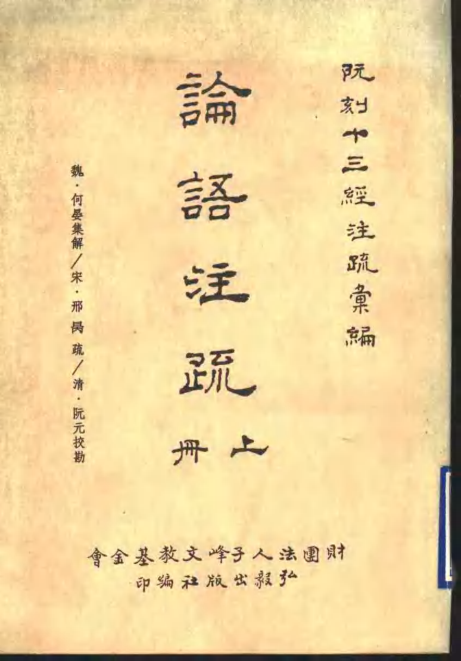 阮刻十三經注疏彙編
論語注疏
上冊
魏．何晏集解／宋．邢昺疏／清．阮元挍勘
財團法人子峰文教基金會
弘毅出版社編印